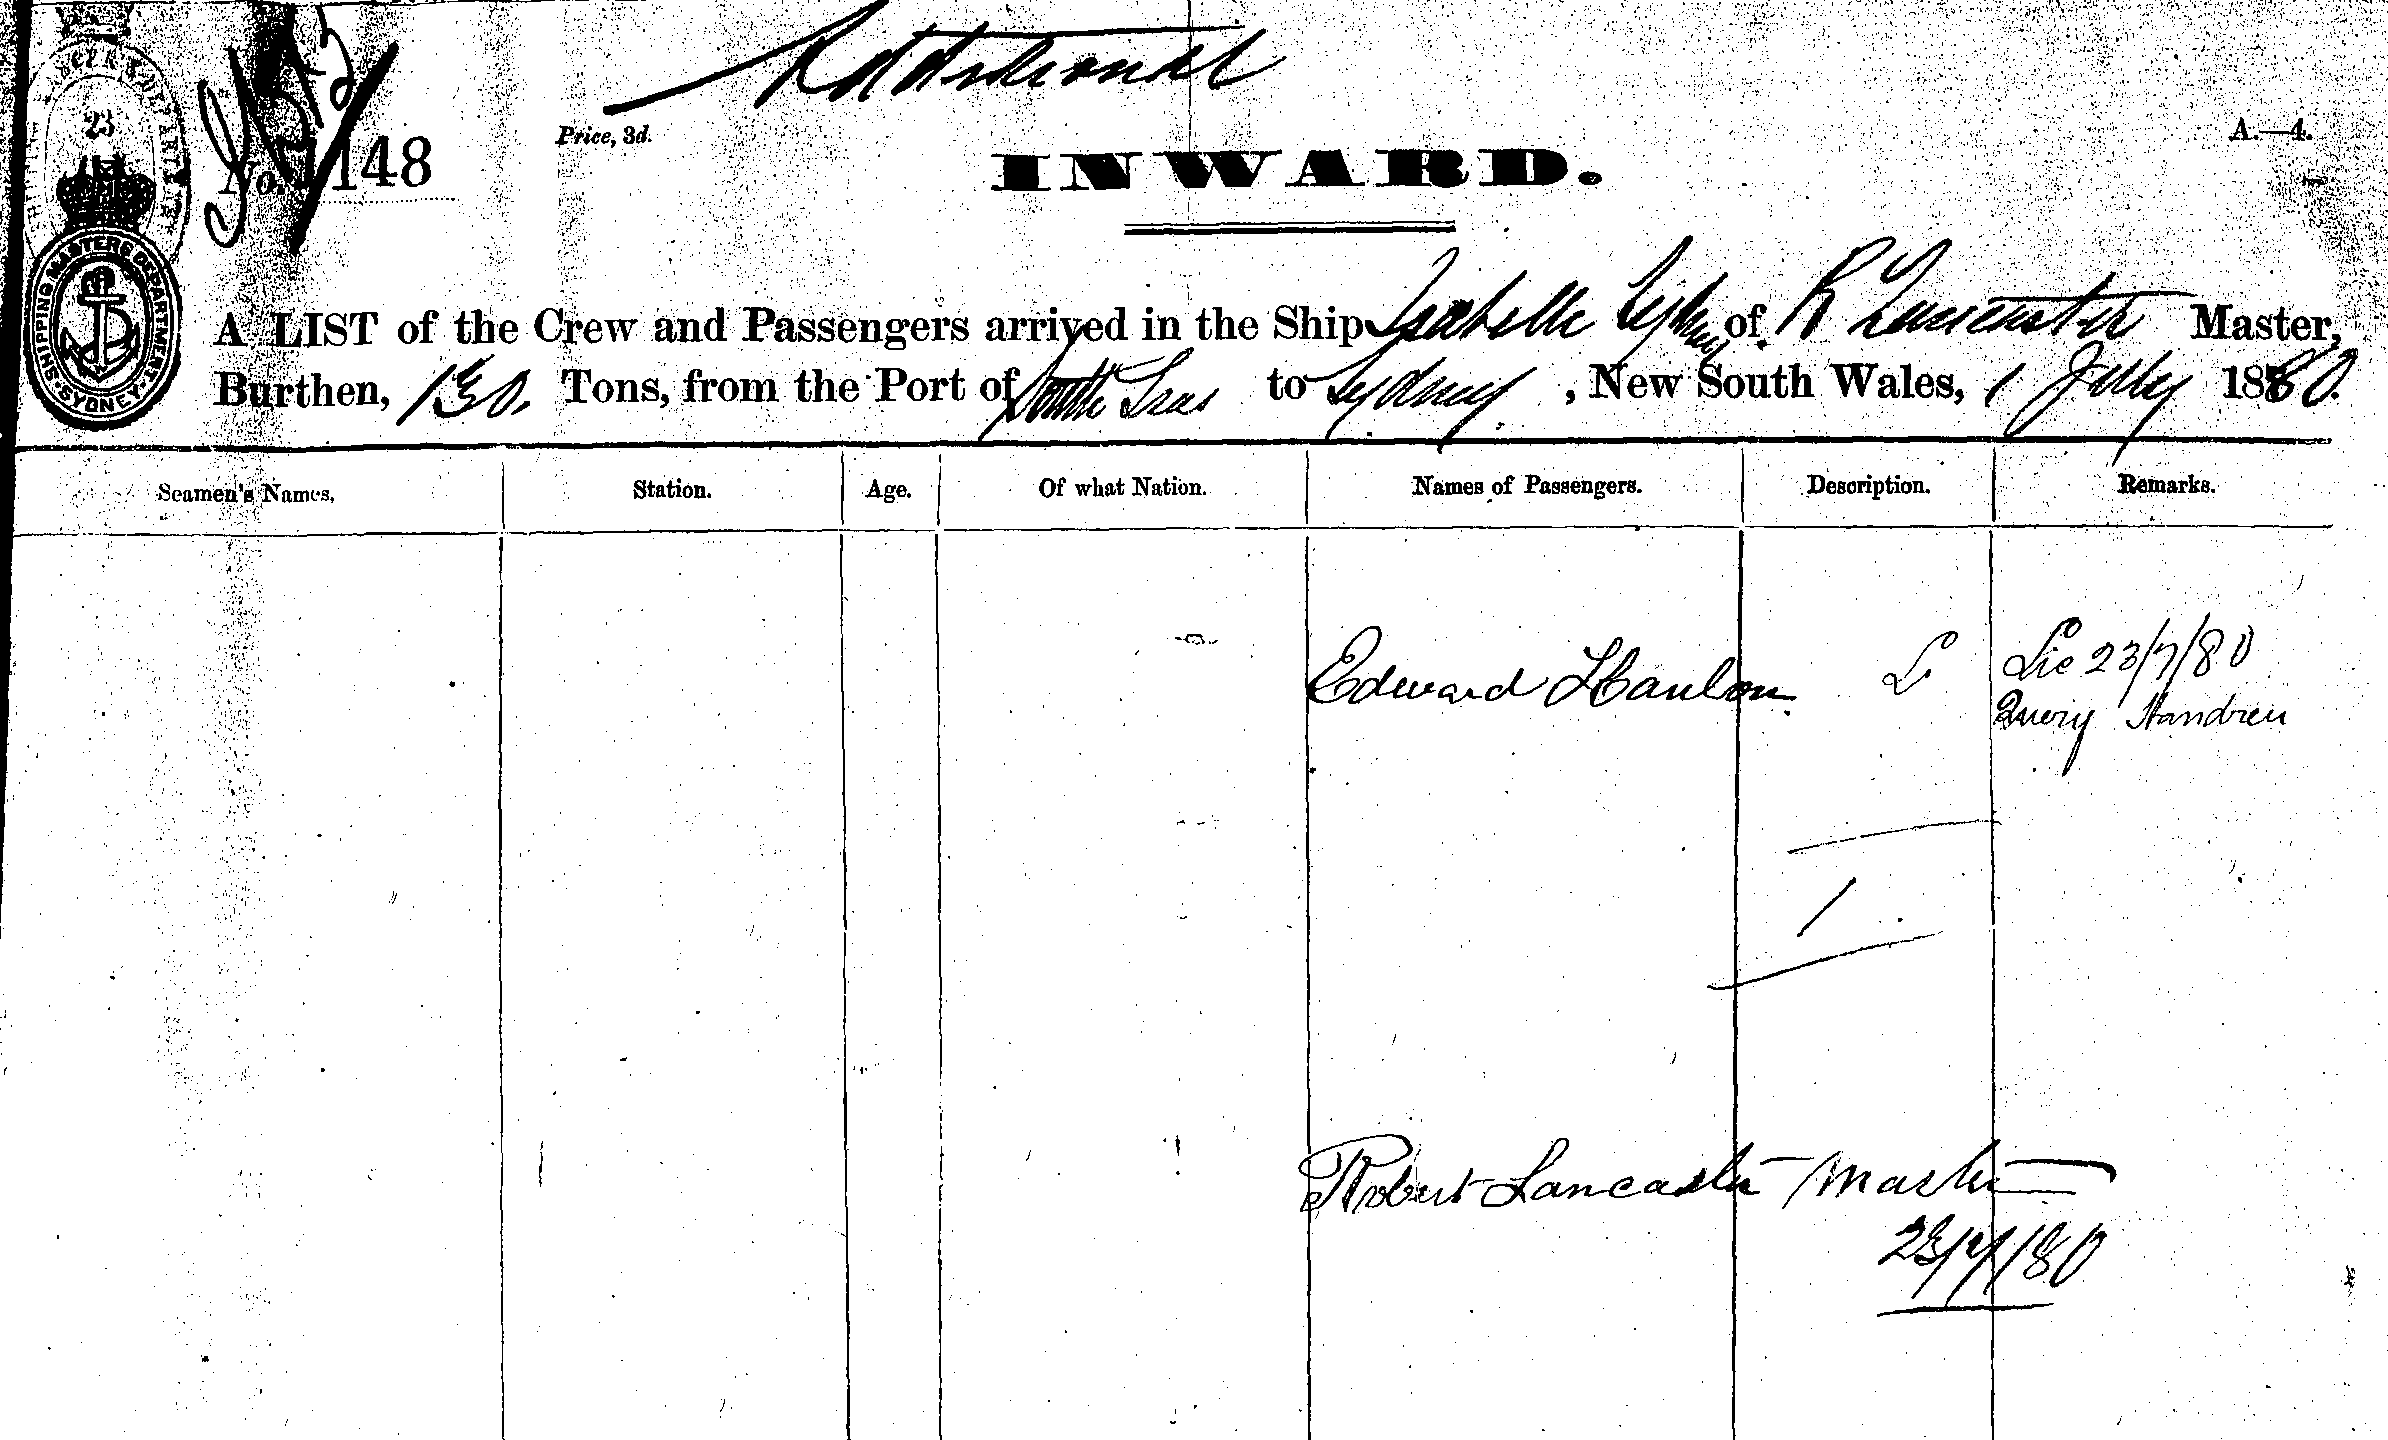 Additional
Price, 3d.
A.—4.
23
No. 148
INWARD.
SHIPPING MASTERS DEPARTMENT. SYDNEY.
A LIST of the Crew and Passengers arrived in the Ship Isabelle of R Lancaster Master,
Burthen, 130. Tons, from the Port of South Seas to Sydney, New South Wales, 1 July 1880.
Seamen's Names, Station. Age. Of what Nation. Names of Passengers. Description. Remarks.
Edward Hanlon L Lic 23/7/80
Query
1
Robert Lancaster Master
23/7/80